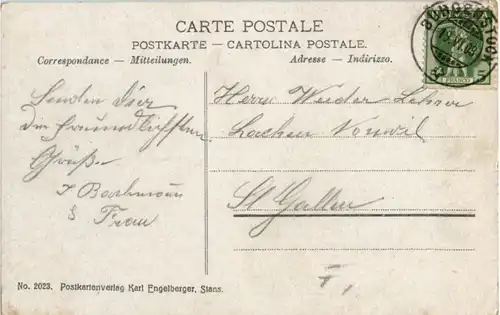 CARTE POSTALE
POSTKARTE — CARTOLINA POSTALE.
Correspondance — Mitteilungen.
Adresse — Indirizzo.
BÜRGENSTOCK
FRANCO
Senden Dir
die freundlichsten
Grüße
J Bachmann
& Frau
Herrn Weder Lehrer
Lachen Vonwil
St Gallen
No. 2023. Postkartenverlag Karl Engelberger, Stans.